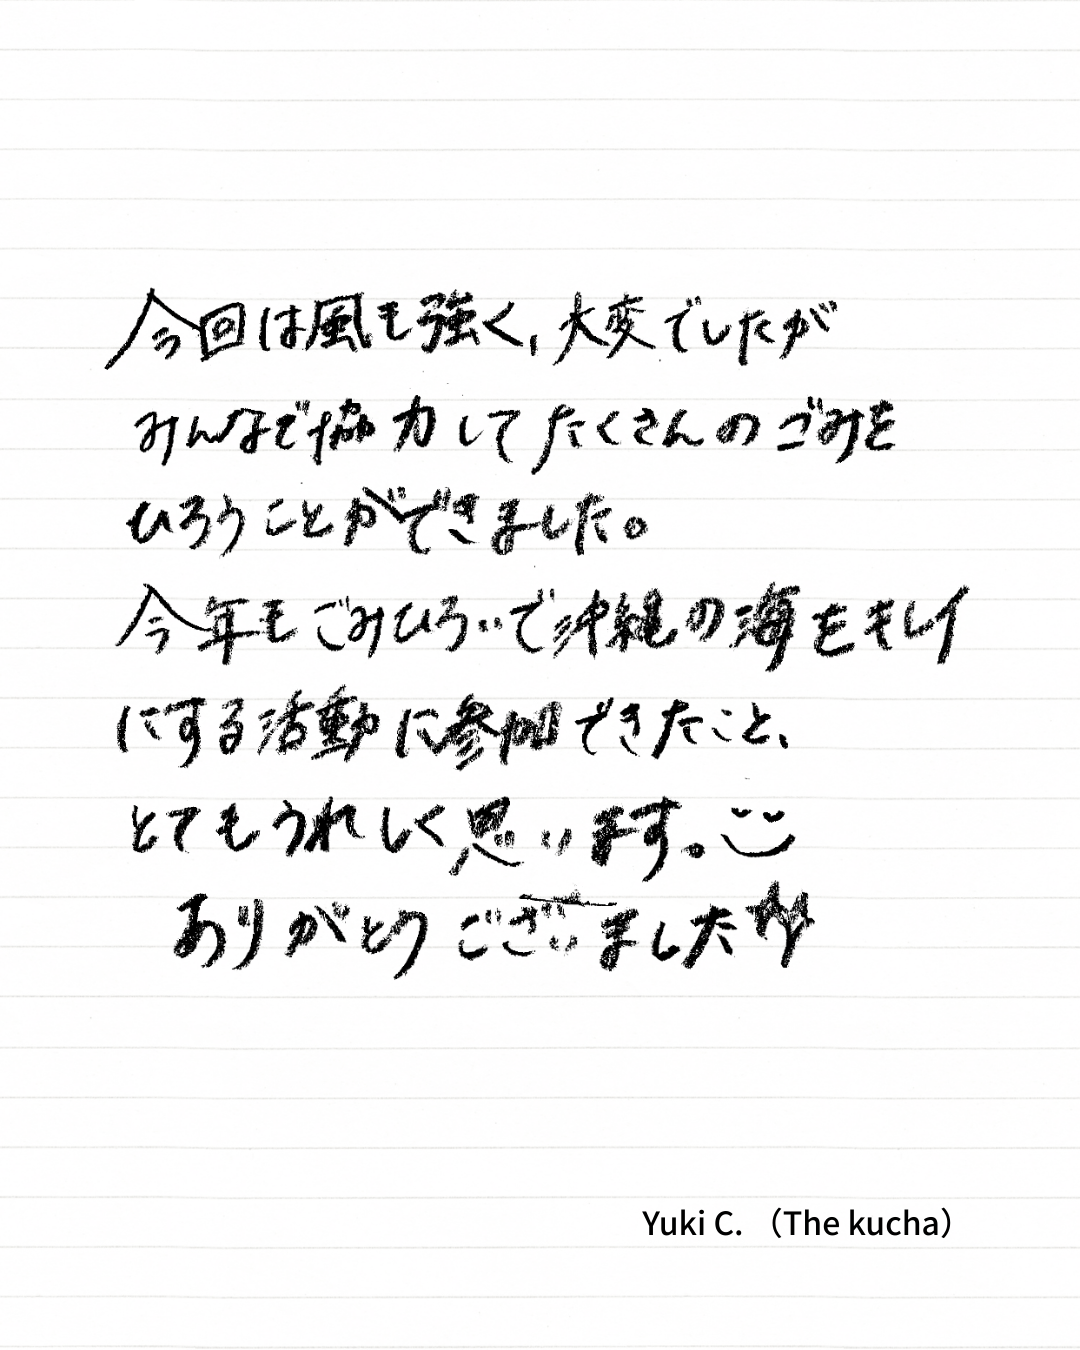 今回は風も強く,大変でしたが
みんなで協力してたくさんのごみを
ひろうことができました。
今年もごみひろいで沖縄の海をキレイ
にする活動に参加できたこと、
とてもうれしく思います。
ありがとうございました
Yuki C. （The kucha）